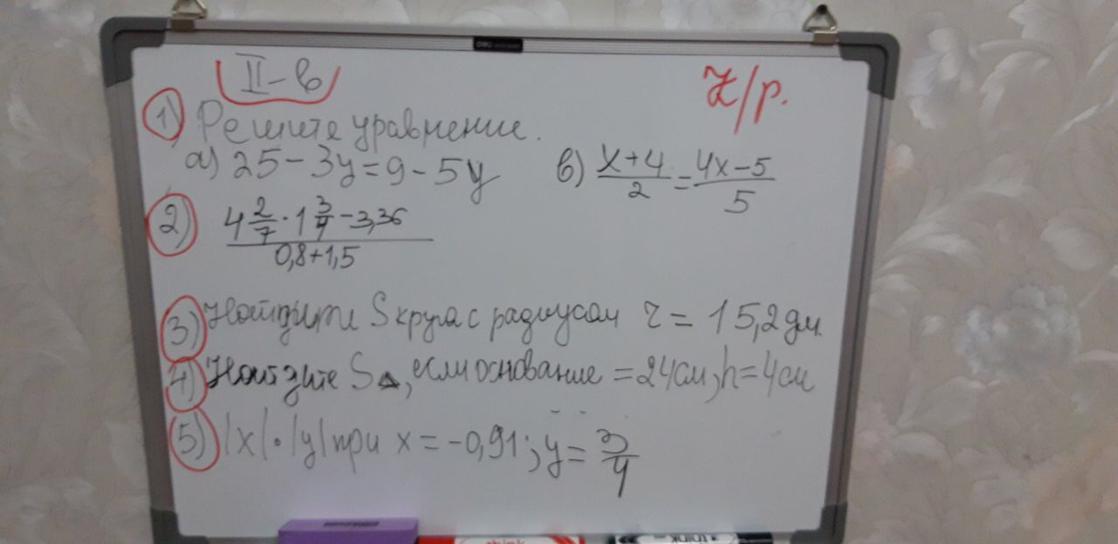 II-в З/р.
1) Решите уравнение.
а) 25 - 3y = 9 - 5y в) (x+4)/2 = (4x-5)/5
2) (4 2/7 · 1 3/4 - 3,36)/(0,8+1,5)
3) Найдите S круга с радиусом r = 15,2 дм.
4) Найдите S△, если основание = 24см, h = 4см
5) |x|·|y| при x = -0,91; y = 3/4